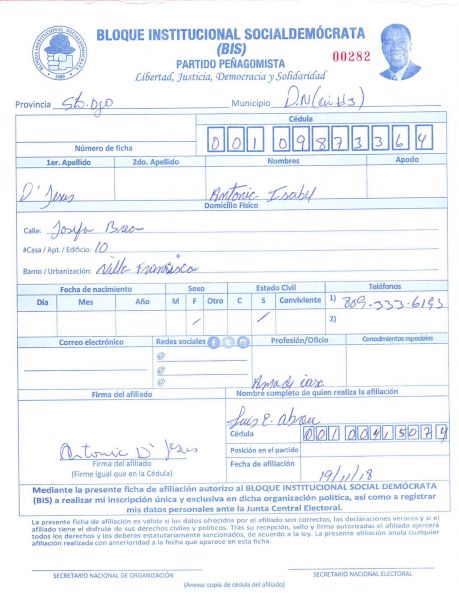 BLOQUE INSTITUCIONAL SOCIALDEMÓCRATA
(BIS)
PARTIDO PEÑAGOMISTA
00282
Libertad, Justicia, Democracia y Solidaridad
Provincia Sto. Dgo Municipio D.N
Cédula
Número de ficha 001 0987336 4
1er. Apellido 2do. Apellido Nombres Apodo
D' Jesus Antonic Isabel
Domicilio Físico
Calle: Josefa Brea
#Casa / Apt. / Edificio: 10
Barrio / Urbanización: Villa Francisca
Fecha de nacimiento Sexo Estado Civil Teléfonos
Día Mes Año M F Otro C S Conviviente 1) 809-333-6193
/ / 2)
Correo electrónico Redes sociales Profesión/Oficio Conodmientos especiales
@
@
@ Ama de casa
Firma del afiliado Nombre completo de quien realiza la afiliación
Luis E. Abreu
Cédula 001 0041507 4
Antonic D' Jesus Posición en el partido
Firma del afiliado
(Firme igual que en la Cédula) Fecha de afiliación 19/11/18
Mediante la presente ficha de afiliación autorizo al BLOQUE INSTITUCIONAL SOCIAL DEMÓCRATA
(BIS) a realizar mi inscripción única y exclusiva en dicha organización política, así como a registrar
mis datos personales ante la Junta Central Electoral.
La presente ficha de afiliación es válida si los datos ofrecidos por el afiliado son correctos, las declaraciones veraces y si el
afiliado tiene el disfrute de sus derechos civiles y políticos. Tras su recepción, sello y firma autorizadas el afiliado ejercerá
todos los derechos y los deberes estatutariamente sancionados, de acuerdo a la ley. La presente afiliación anula cualquier
afiliación realizada con anterioridad a la fecha que aparece en esta ficha.
SECRETARIO NACIONAL DE ORGANIZACIÓN SECRETARIO NACIONAL ELECTORAL
(Anexar copia de cédula del afiliado)